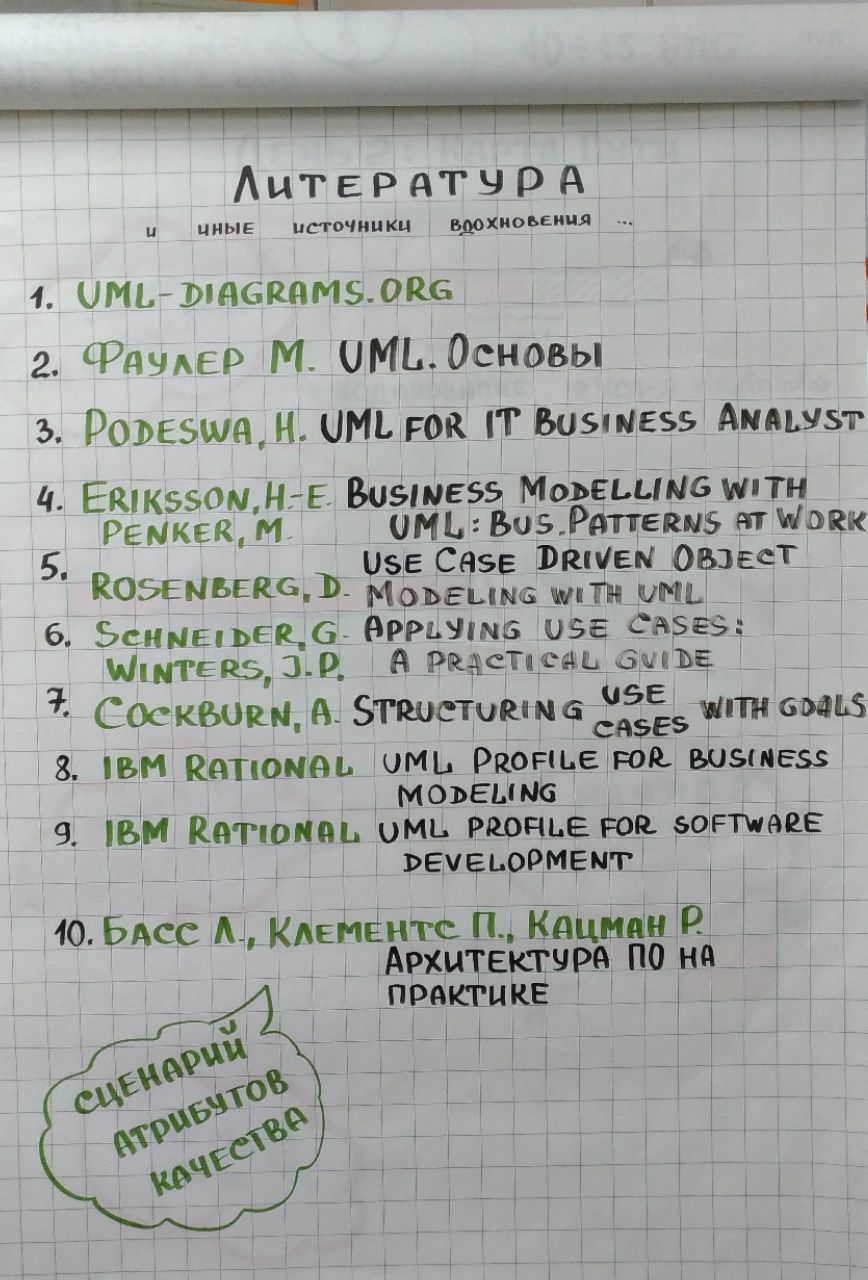 Литература
и иные источники вдохновения ...
1. UML-DIAGRAMS.ORG
2. Фаулер М. UML. Основы
3. PODESWA, H. UML FOR IT BUSINESS ANALYST
4. ERIKSSON, H.-E. BUSINESS MODELLING WITH
PENKER, M. UML: BUS. PATTERNS AT WORK
5. USE CASE DRIVEN OBJECT
ROSENBERG, D. MODELING WITH UML
6. SCHNEIDER, G. APPLYING USE CASES:
WINTERS, J.P. A PRACTICAL GUIDE
7. COCKBURN, A. STRUCTURING USE CASES WITH GOALS
8. IBM RATIONAL UML PROFILE FOR BUSINESS
MODELING
9. IBM RATIONAL UML PROFILE FOR SOFTWARE
DEVELOPMENT
10. БАСС Л., КЛЕМЕНТС П., КАЦМАН Р.
АРХИТЕКТУРА ПО НА
ПРАКТИКЕ
СЦЕНАРИЙ
АТРИБУТОВ
КАЧЕСТВА